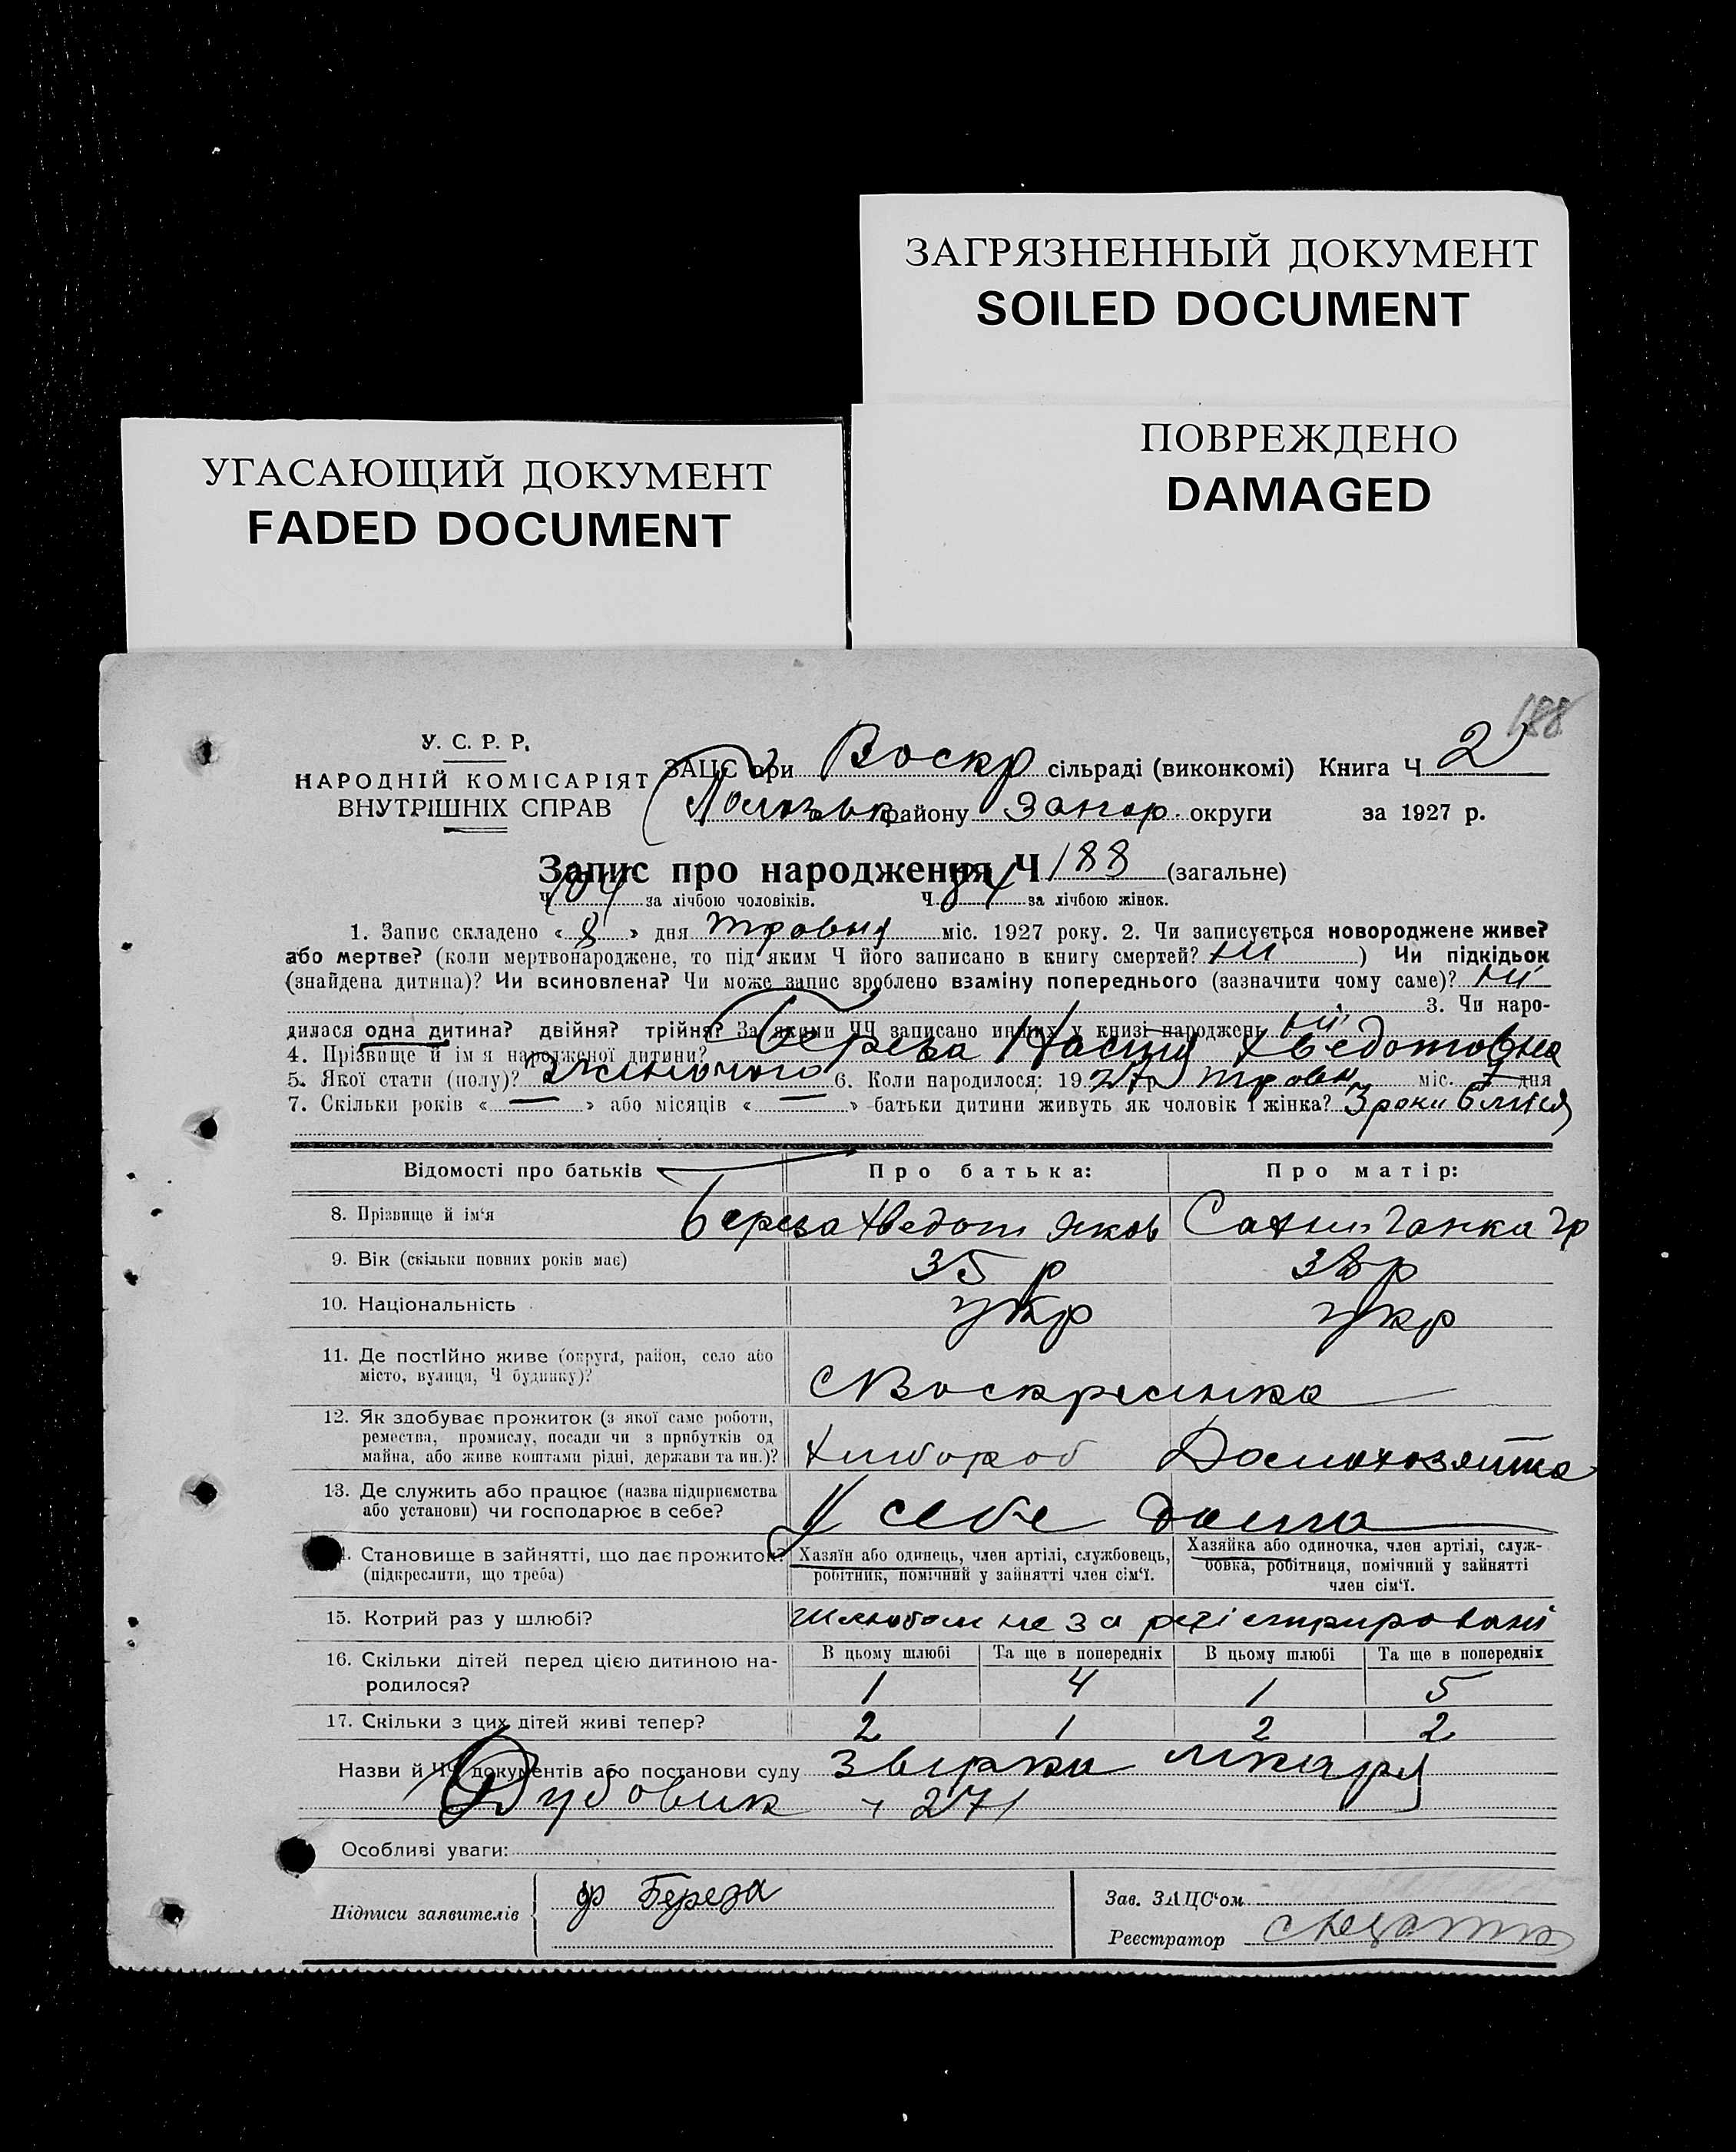 ЗАГРЯЗНЕННЫЙ ДОКУМЕНТ
SOILED DOCUMENT
ПОВРЕЖДЕНО
DAMAGED
УГАСАЮЩИЙ ДОКУМЕНТ
FADED DOCUMENT
188
У. С. Р. Р.
НАРОДНІЙ КОМІСАРІЯТ
ВНУТРІШНІХ СПРАВ
ЗАЦС при Воскр сільраді (виконкомі) Книга Ч 2
району Запор. округи за 1927 р.
Запис про народження Ч 188 (загальне)
Ч 104 за лічбою чоловіків. Ч 84 за лічбою жінок.
1. Запис складено « 8 » дня травня міс. 1927 року. 2. Чи записується новороджене живе?
або мертве? (коли мертвонароджене, то під яким Ч його записано в книгу смертей? ні ) Чи підкідьок
(знайдена дитина)? Чи всиновлена? Чи може запис зроблено взаміну попереднього (зазначити чому саме)? ні
3. Чи наро-
дилася одна дитина? двійня? трійня? За якими ЧЧ записано инших у книзі народжень ні
4. Прізвище й ім'я народженої дитини? Береза Настя Хведотовна
5. Якої стати (полу)? жіночого 6. Коли народилося: 1927р травн міс. 7 дня
7. Скільки років « — » або місяців « — » батьки дитини живуть як чоловік і жінка? 3 роки 6 міся
Відомості про батьків Про батька: Про матір:
8. Прізвище й ім'я Береза Хведот Яков Ганка Гр
9. Вік (скільки повних років має) 35 р 38 р
10. Національність укр укр
11. Де постійно живе (округа, район, село або
місто, вулиця, Ч будинку)? с Воскресенка
12. Як здобуває прожиток (з якої саме роботи,
ремества, промислу, посади чи з прибутків од
майна, або живе коштами рідні, держави та ин.)? Хлибороб Домохозяйка
13. Де служить або працює (назва підприємства
або установи) чи господарює в себе? У себе дома
Становище в зайнятті, що дає прожиток?
(підкреслити, що треба)
Хазяїн або одинець, член артілі, службовець,
робітник, помічний у зайнятті член сім'ї.
Хазяйка або одиночка, член артілі, служ-
бовка, робітниця, помічний у зайнятті
член сім'ї.
15. Котрий раз у шлюбі? шлюбом не зарегістріровані
16. Скільки дітей перед цією дитиною на-
родилося?
В цьому шлюбі Та ще в попередніх В цьому шлюбі Та ще в попередніх
1 4 1 5
17. Скільки з цих дітей живі тепер? 2 1 2 2
Назви й ЧЧ документів або постанови суду
Дубовик 271
Особливі уваги:
Підписи заявителів Береза
Зав. ЗАЦС'ом
Реєстратор